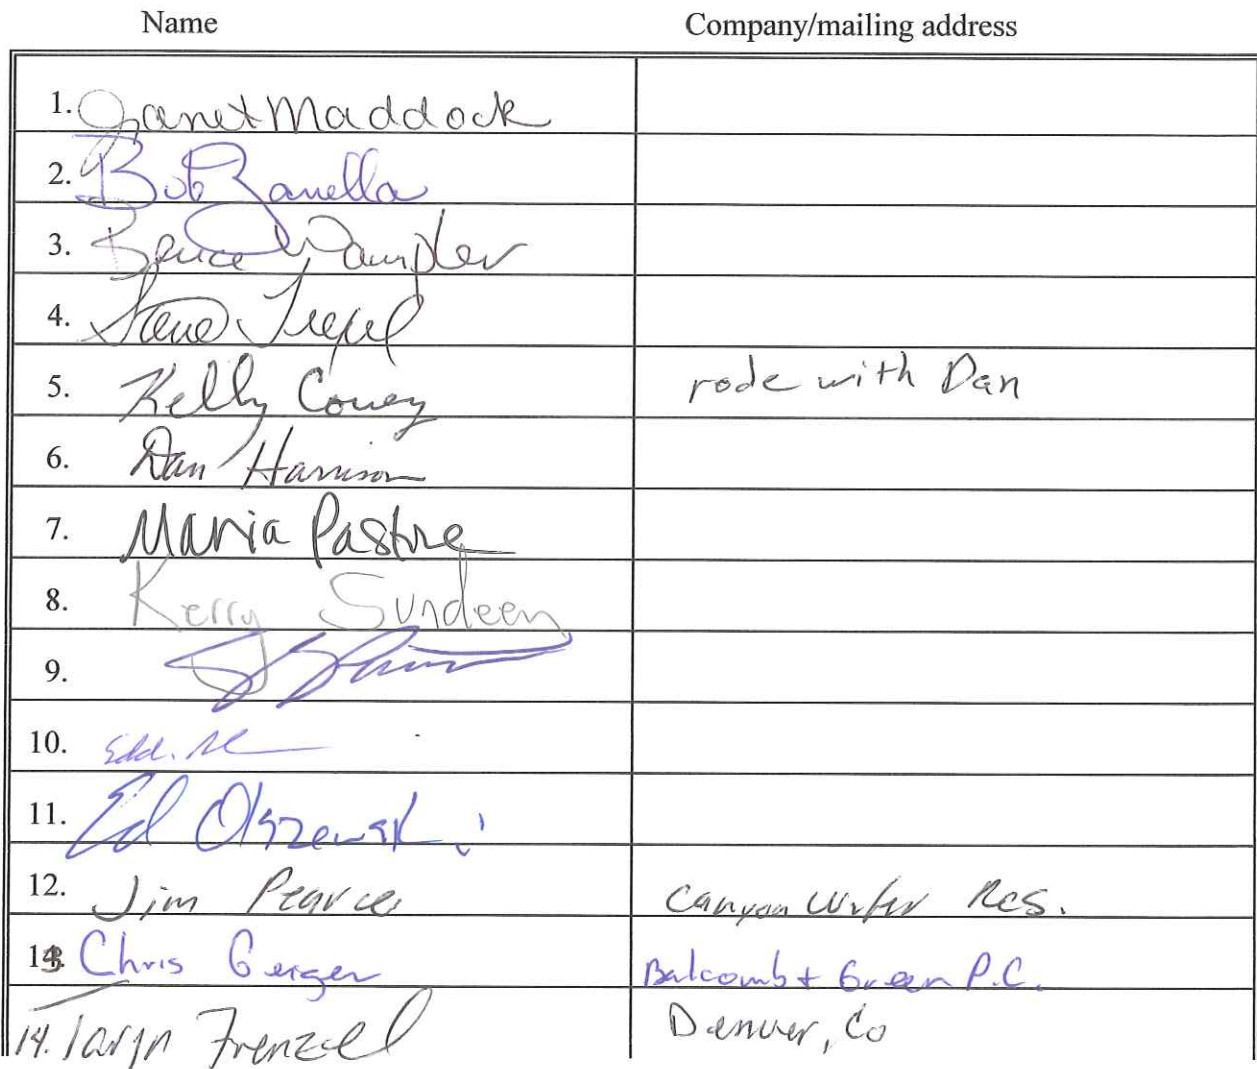 Name Company/mailing address
1. Janet Maddock
2. Bob Zanella
3. Bruce Wampler
4. Steve
5. Kelly Couey rode with Dan
6. Dan Harrison
7. Maria Pastore
8. Kerry Sundeen
9.
10.
11. Ed Olszewski
12. Jim Pearce Canyon Water Res.
13. Chris Geiger Balcomb + Green P.C.
14. Taryn Frenzel Denver, Co